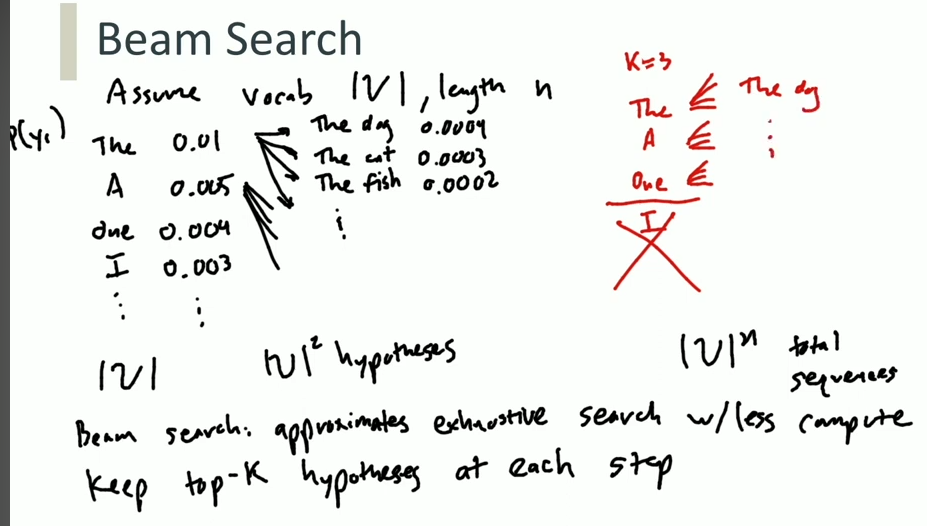 Beam Search
Assume vocab |V|, length n
P(y₁)
The 0.01
A 0.005
One 0.004
I 0.003
⋮ ⋮
The dog 0.0004
The cat 0.0003
The fish 0.0002
⋮
K=3
The
A
One
I
The dog
⋮
|V|
|V|² hypotheses
|V|ⁿ total
sequences
Beam search: approximates exhaustive search w/less compute
Keep top-K hypotheses at each step